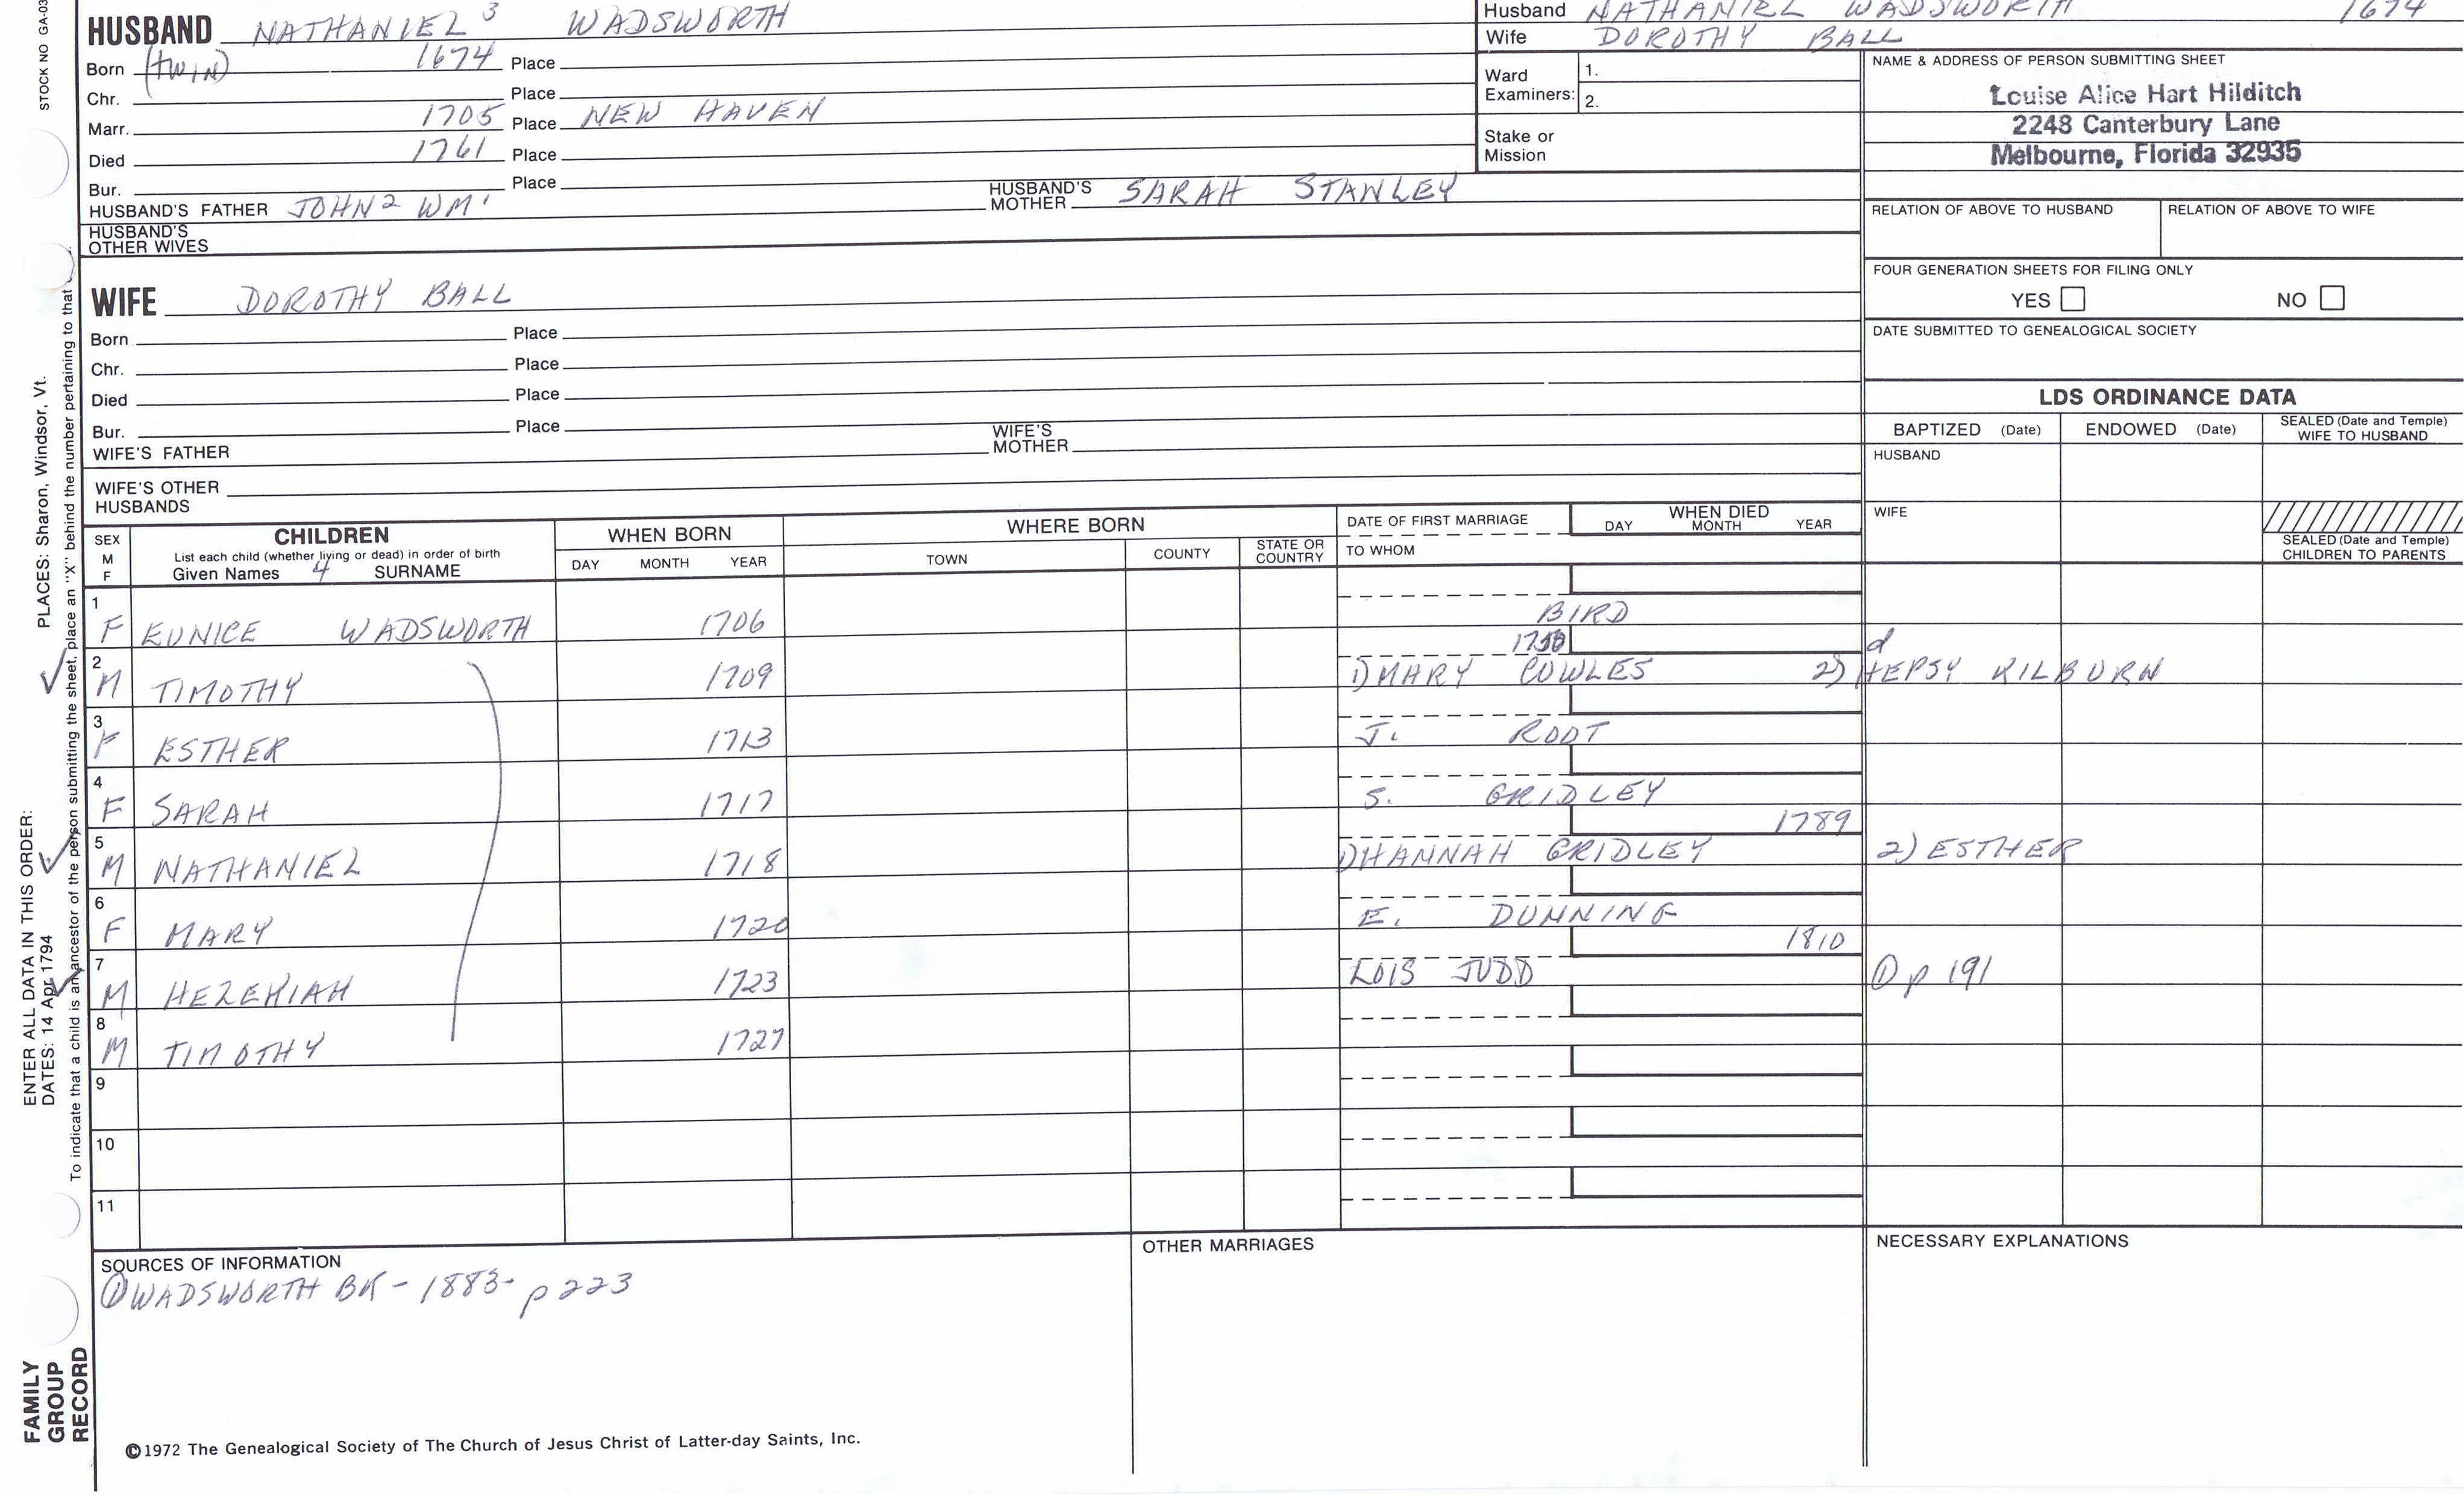 STOCK NO GA-03
HUSBAND NATHANIEL 3 WADSWORTH
Born (TWIN) 1674 Place
Chr. Place
Marr. 1705 Place NEW HAVEN
Died 1761 Place
Bur. Place
HUSBAND'S FATHER JOHN 2 WM 1 HUSBAND'S MOTHER SARAH STANLEY
HUSBAND'S OTHER WIVES
Husband NATHANIEL WADSWORTH 1674
Wife DOROTHY BALL
Ward Examiners: 1.
2.
Stake or Mission
NAME & ADDRESS OF PERSON SUBMITTING SHEET
Louise Alice Hart Hilditch
2248 Canterbury Lane
Melbourne, Florida 32935
RELATION OF ABOVE TO HUSBAND RELATION OF ABOVE TO WIFE
FOUR GENERATION SHEETS FOR FILING ONLY
YES NO
DATE SUBMITTED TO GENEALOGICAL SOCIETY
WIFE DOROTHY BALL
Born Place
Chr. Place
Died Place
Bur. Place
WIFE'S FATHER WIFE'S MOTHER
WIFE'S OTHER HUSBANDS
LDS ORDINANCE DATA
BAPTIZED (Date) ENDOWED (Date) SEALED (Date and Temple) WIFE TO HUSBAND
HUSBAND
WIFE
SEALED (Date and Temple) CHILDREN TO PARENTS
SEX M F
CHILDREN
List each child (whether living or dead) in order of birth
Given Names 4 SURNAME
WHEN BORN
DAY MONTH YEAR
WHERE BORN
TOWN COUNTY STATE OR COUNTRY
DATE OF FIRST MARRIAGE
TO WHOM
WHEN DIED
DAY MONTH YEAR
1 F EUNICE WADSWORTH 1706 BIRD
2 M TIMOTHY 1709 1) MARY COWLES 2) HEPSY KILBURN
d
3 F ESTHER 1713 J. ROOT
4 F SARAH 1717 S. GRIDLEY
5 M NATHANIEL 1718 1) HANNAH GRIDLEY 1789 2) ESTHER
6 F MARY 1720 E. DUNNING
7 M HEZEKIAH 1723 LOIS JUDD 1810 ① p 191
8 M TIMOTHY 1727
9
10
11
SOURCES OF INFORMATION
① WADSWORTH BK - 1883 - p 223
OTHER MARRIAGES
NECESSARY EXPLANATIONS
©1972 The Genealogical Society of The Church of Jesus Christ of Latter-day Saints, Inc.
ENTER ALL DATA IN THIS ORDER:
DATES: 14 Apr 1794 PLACES: Sharon, Windsor, Vt.
To indicate that a child is an ancestor of the person submitting the sheet, place an "X" behind the number pertaining to that
FAMILY
GROUP
RECORD